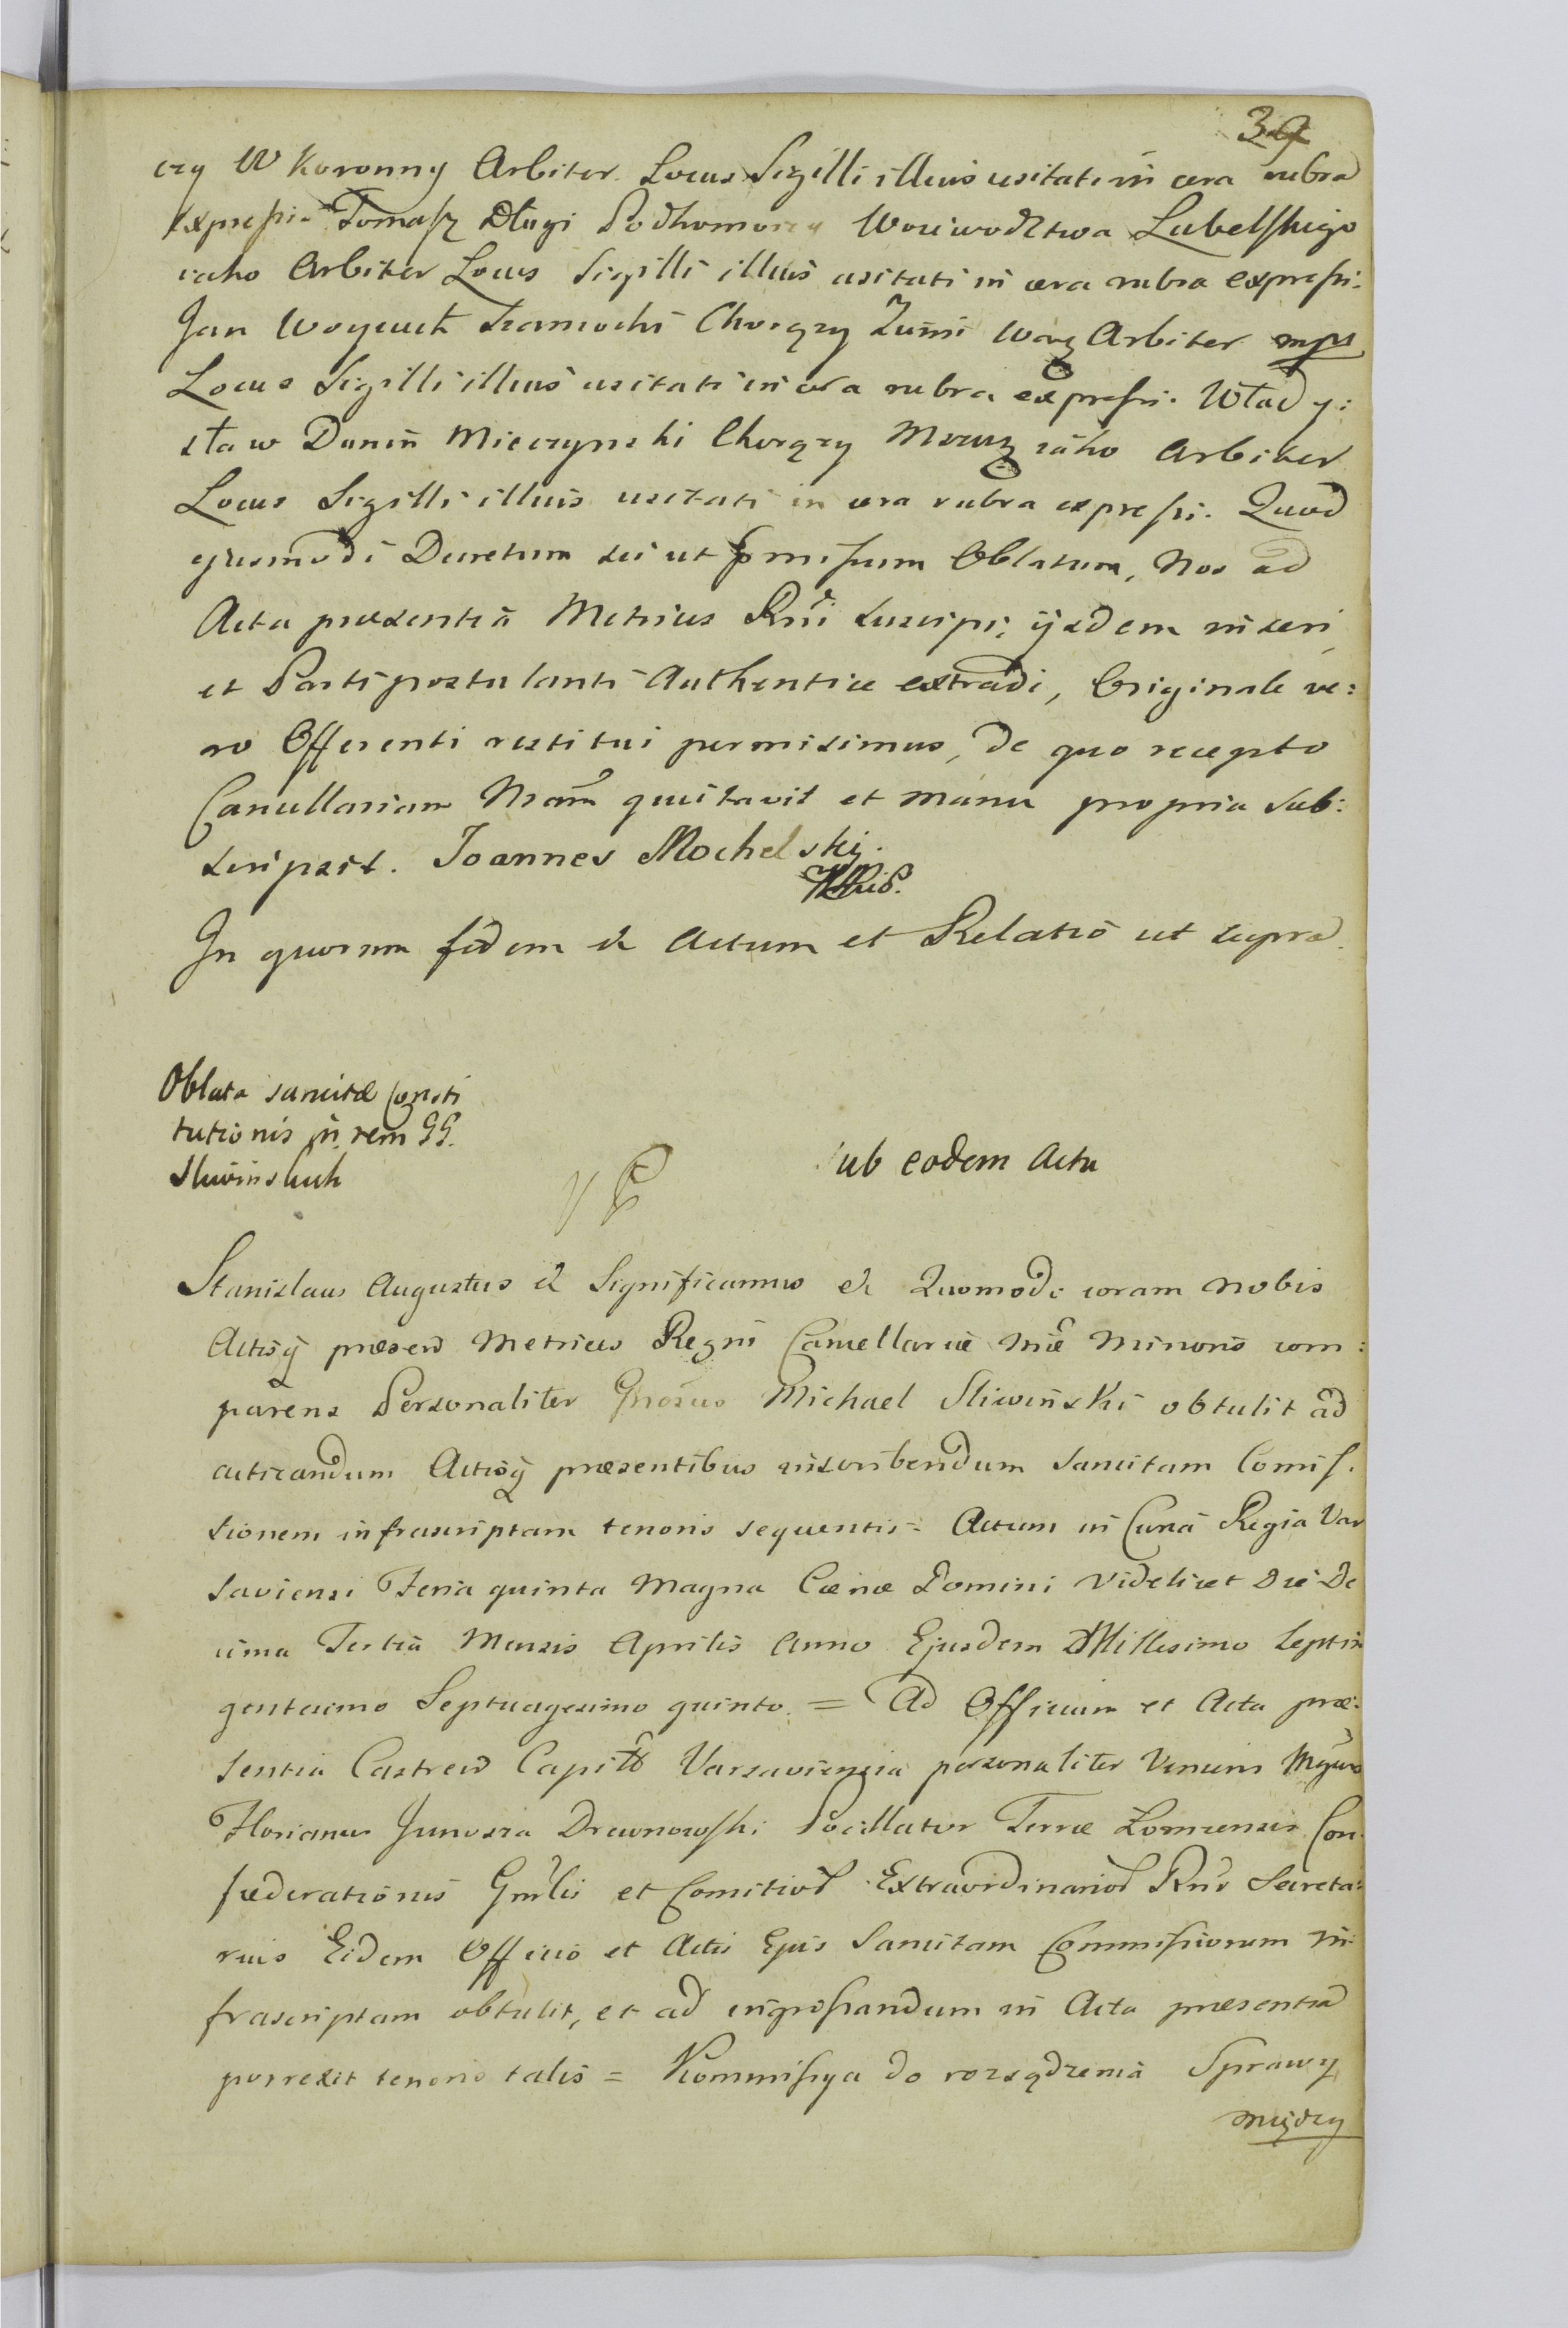 39
czy W Koronny Arbiter. Locus Sigilli illius usitati in cera rubra
expressi. Tomasz Długi Podkomorzy Woiewodztwa Lubelskiego
iako Arbiter Locus Sigilli illius usitati in cera rubra expressi.
Jan Woyciech Szamocki Chorąży Ziemi Warz Arbiter mpr
Locus Sigilli illius usitati in cera rubra expressi. Włady:
sław Dunin Mieczynski Chorąży iako Arbiter
Locus Sigilli illius usitati in cera rubra expressi. Quod
ejusmodi Decretum sic ut pmissum Oblatum, Nos ad
Acta præsentia Metrices Rni suscipi, ijsdem inseri
et Parti postulanti Authentice extradi, Originale ve:
ro Offerenti restitui permisimus, de quo recepto
Cancellariam Nram quietavit et manu propria sub:
scripsit. Joannes Mochelskj.
In quorum fidem &c Actum et Relatio ut supra.
Oblata sancitæ Consti
tutionis in rem GG.
Sliwinskich
Sub eodem Actu
Stanislaus Augustus &c Significamus &c Quomodo coram nobis
Actisq præsen Metrices Regni Cancellariæ Nræ Minoris com:
parens Personaliter Gnosus Michael Sliwiński obtulit ad
acticandum Actisq præsentibus inscribendum sancitam Comis.
sionem infrascriptam tenoris sequentis = Actum in Curia Regia Var
saviensi Feria quinta Magna Cænæ Domini videlicet Die De
cima Tertia Mensis Aprilis Anno Ejusdem Millesimo Septin
gentesimo Septuagesimo quinto. = Ad Officium et Acta præ:
sentia Castren Capitlia Varsaviensia personaliter veniens Mgcus
Florianus Junosza Drewnowski Pocillator Terræ Łomzensis Con.
fæderationis Gnrlis et Comitior Extraordinarior Rni Secreta:
rius Eidem Officio et Actis Ejus Sancitam Commissionem in
frascriptam obtulit, et ad ingrossandum in Acta præsentia
porrexit tenoris talis = Kommissya do rozsądzenia Sprawy
między